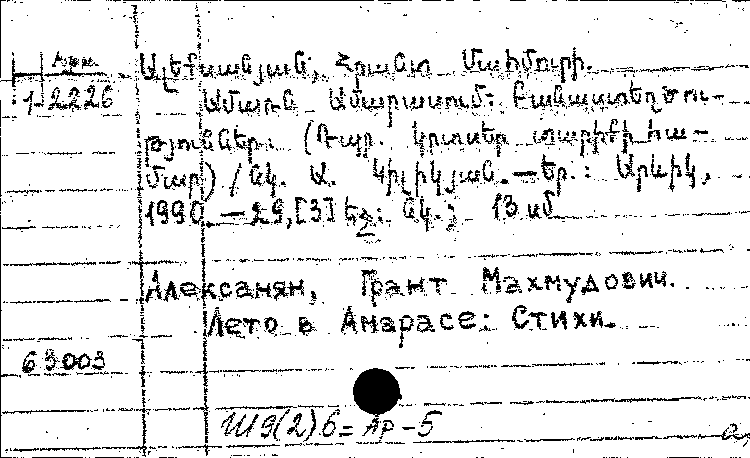 Հրմ.
Ալեքսանյան, Հրանտ Մախմուրի.
1-2226 Ամառն Ամարասում: Բանաստեղծու-
թյուններ: (Դպր. կրտսեր տարիքի հա-
մար) / Նկ. Ա. Կիլիկյան. — Եր.: Արևիկ,
1990. — 29, [3] էջ: նկ.; 13 սմ
Алексанян, Грант Махмудович.
Лето в Амарасе: Стихи.
63003
Ш9(2)6=Ар-5
а,